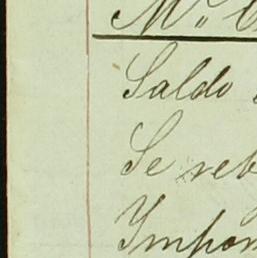 Mr.
Saldo
Se reb
Impor